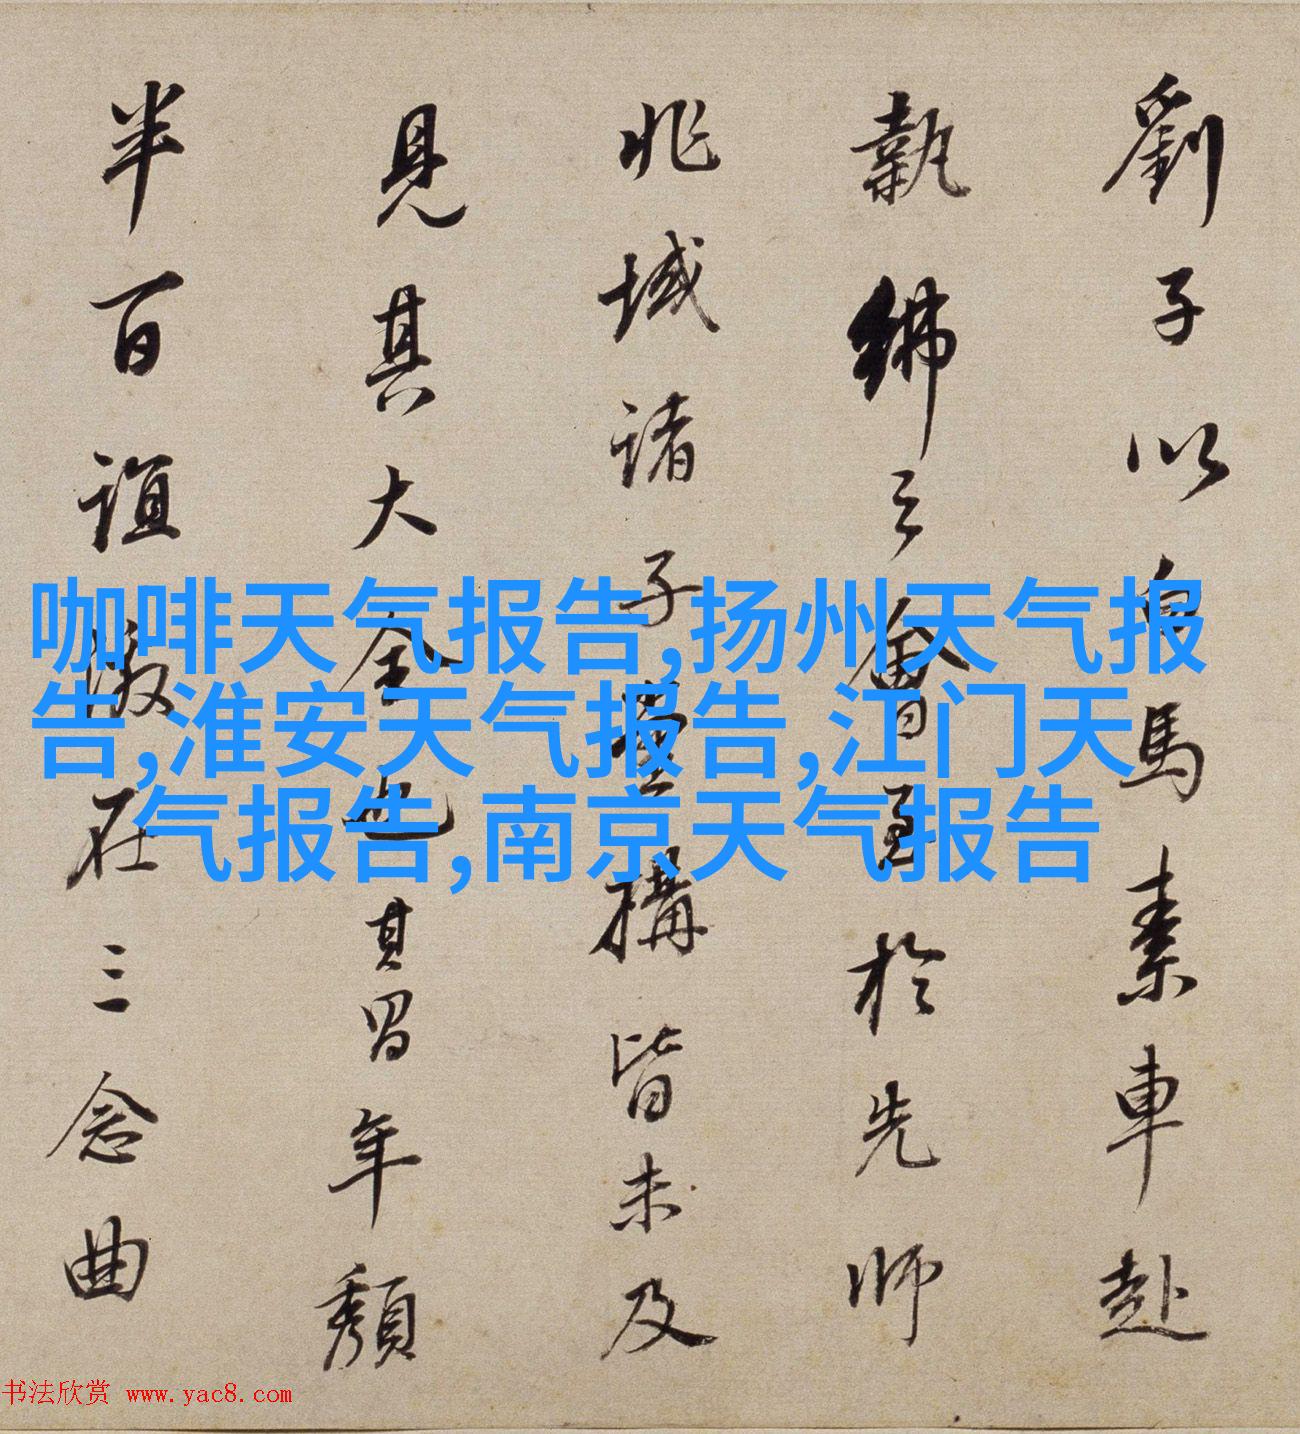 劉子以白馬素車赴
執紼之會至於先師
兆域諸子堂構皆未及
見其大全也其眉年頹
半百誼激在三念曲
咖啡天气报告,扬州天气报
告,淮安天气报告,江门天
气报告,南京天气报告
书法欣赏 www.yac8.com